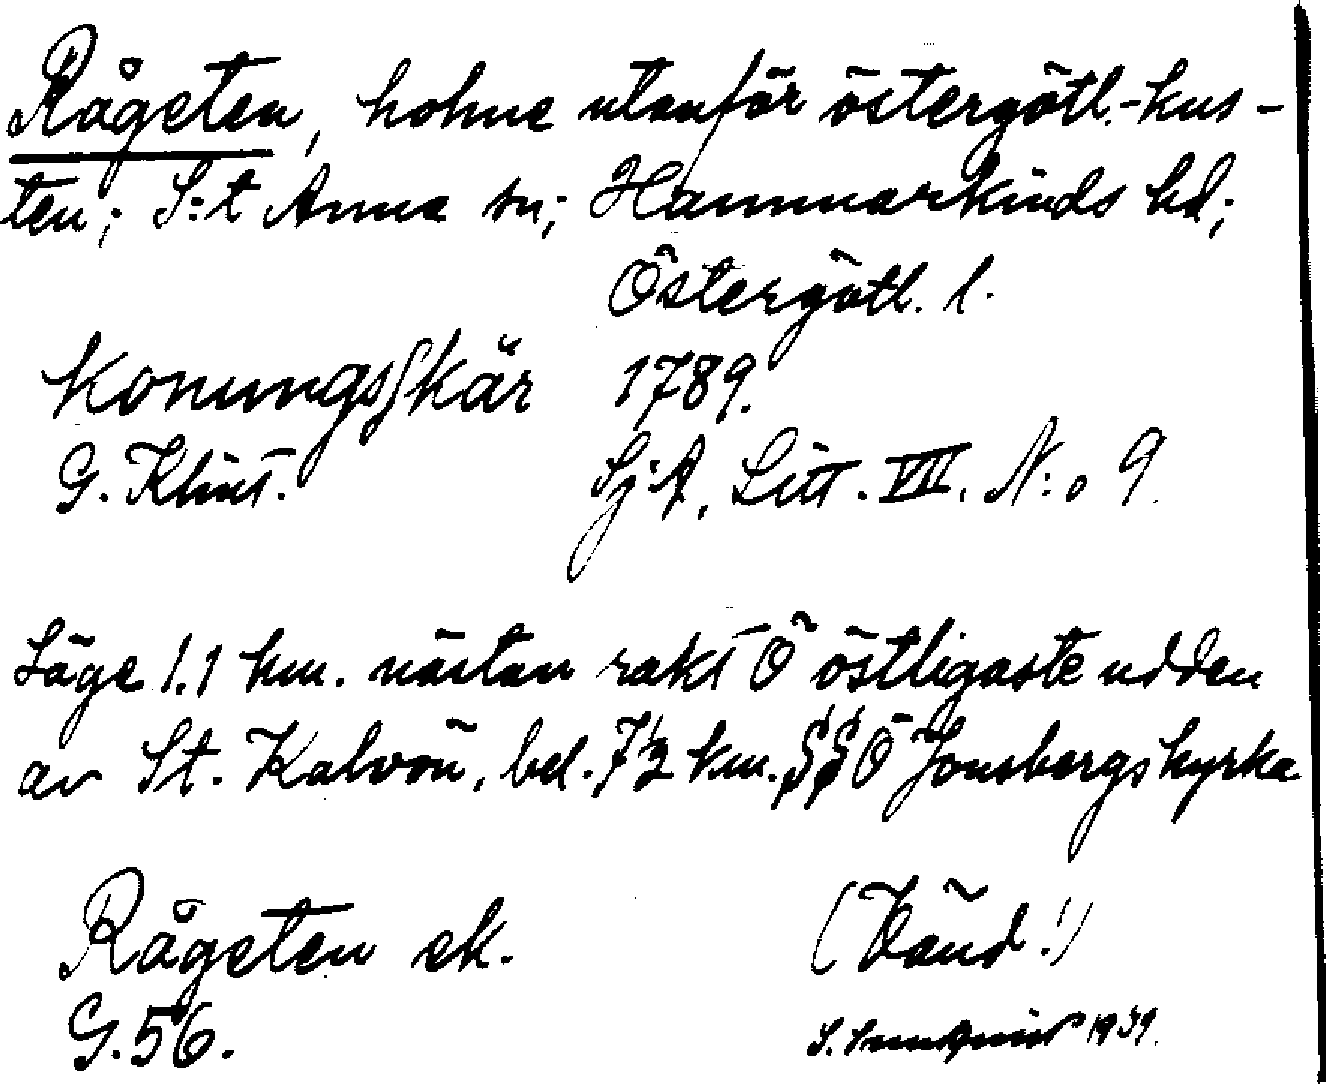 Rågeten, holme utanför östergötl.-kus-
ten; S:t Anna sn; Hammarkinds hd;
Östergötl. l.
Konungsskär 1789.
G. Klint. Sj.A. Litt. VII. N:o 9.
Läge 1.1 km. nästan rakt Ö östligaste udden
av St. Kalvön, bel. 7½ km. Ö Jonsbergs kyrka
Rågeten ek. (Vänd!)
G.56. S. 1939.